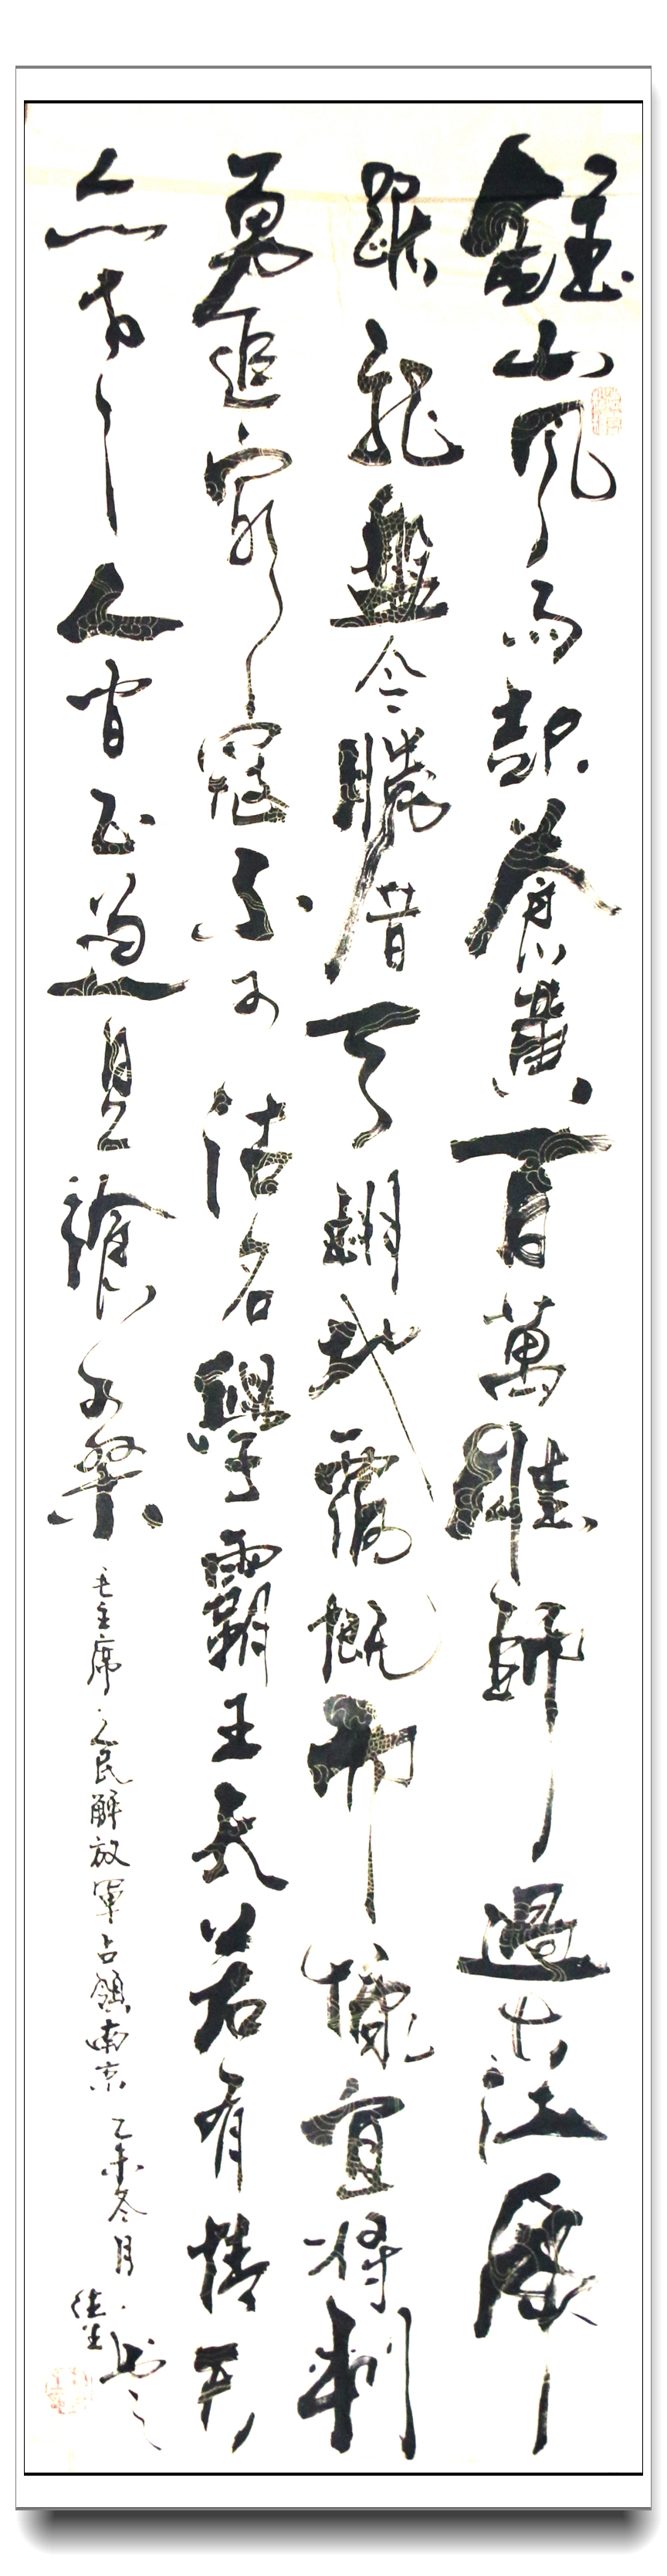 鍾山風雨起蒼黃百萬雄師過大江虎
踞龍盤今勝昔天翻地覆慨而慷宜將剩
勇追窮寇不可沽名學霸王天若有情天
亦老人間正道是滄桑 毛主席人民解放軍占領南京 乙未冬月